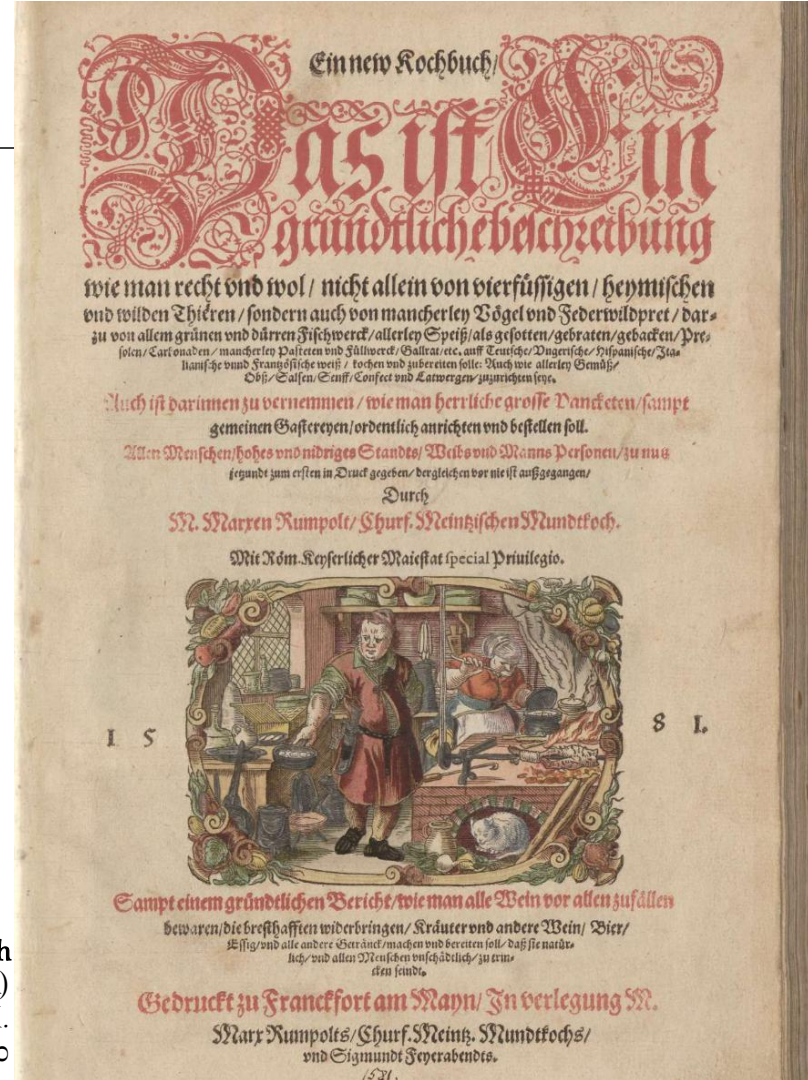 Ein new Kochbuch/
Das ist Ein
gründtliche beschreibung
wie man recht vnd wol / nicht allein von vierfüssigen / heymischen
vnd wilden Thieren / sondern auch von mancherley Vögel vnd Federwildpret / dar-
zu von allem grünen vnd dürren Fischwerck / allerley Speiß / als gesotten / gebraten / gebacken / Pre-
solen / Carbonaden / mancherley Pasteten vnd Füllwerck / Gallrat / etc. auff Teutsche / Vngerische / Hispanische / Ita-
lianische vnnd Frantzösische weiß / kochen vnd zubereiten solle: Auch wie allerley Gemüß /
Obß / Salsen / Senff / Confect vnd Latwergen / zuzurichten seye.
Auch ist darinnen zu vernemmen / wie man herrliche grosse Pancketen / sampt
gemeinen Gastereyen / ordentlich anrichten vnd bestellen soll.
Allen Menschen / hohes vnd nidriges Standts / Weibs vnd Manns Personen / zu nutz
jetzundt zum ersten in Druck gegeben / dergleichen vor nie ist außgegangen /
Durch
M. Marxen Rumpolt / Churf. Meintzischen Mundtkoch.
Mit Röm. Keyserlicher Maiestat special Priuilegio.
1 5 8 1.
Sampt einem gründtlichen Bericht / wie man alle Wein vor allen zufällen
bewaren / die bresthafften widerbringen / Kräuter vnd andere Wein / Bier /
Essig / vnd alle andere Getränck / machen vnd bereiten soll / daß sie natür-
lich / vnd allen Menschen vnschädtlich / zu trin-
cken seindt.
Gedruckt zu Franckfort am Mayn / In verlegung M.
Marx Rumpolts / Churf. Meintz. Mundtkochs /
vnd Sigmundt Feyerabendts.
1581.
h
)